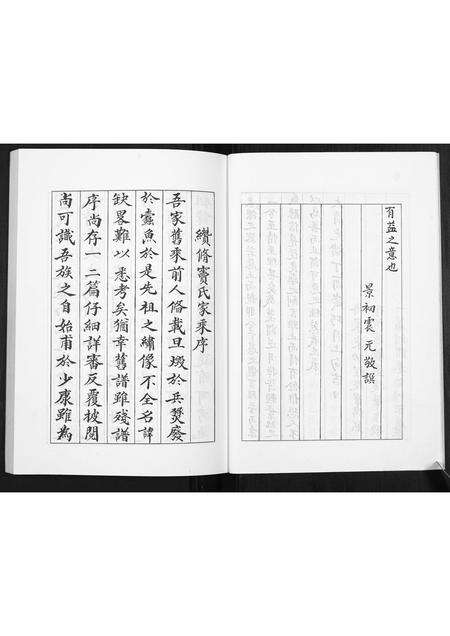 有益之意也
景初雲元敬譔
續修竇氏家乘序
吾家舊乘前人俻載旦燬於兵燹廢
於蠹魚於是先祖之繡像不全名諱
缺畧難以悉考矣猶幸舊譜雖殘譜
序尚存一二篇仔細詳審反覆披閱
尚可識吾族之自始甫於少康雖為